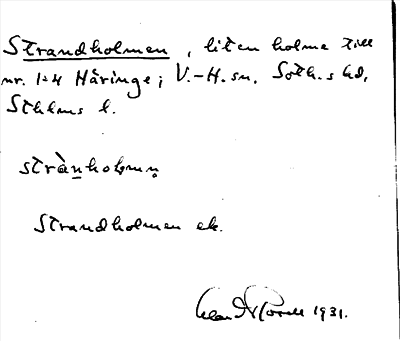 Strandholmen, liten holme till
nr. 1-4 Häringe; V.-H. sn, Soth.s hd,
Sthlms l.
stràn̲holmn̥
Strandholmen ek.
1931.